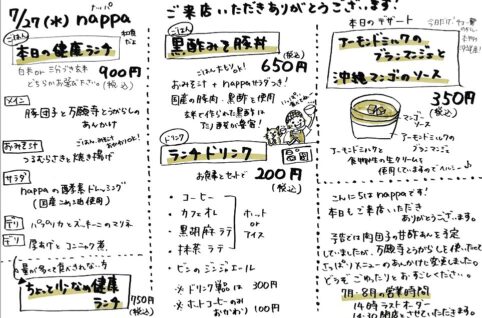 7/27(水) nappa
ナッパ
ご来店いただきありがとうございます!
ごはん
本日の健康ランチ
和食
だよ
白米 or 三分づき玄米
どちらかお選びください。
900円
(税込)
メイン
豚団子と万願寺とうがらしの
あんかけ
おみそ汁
ごはん、おみそ汁
おかわりOK!
つるむらさきと焼き揚げ
サラダ
nappaの酵素玄ドレッシング
(国産こめ油使用)
デリ
パプリカとズッキーニのマリネ
デリ
厚あげとコンニャク煮
量が多くて食べきれない方
ちょっと少なめ健康
ランチ
750円
(税込)
ごはん
黒酢みそ豚丼
(税込)
ごはん大もりOK!
650円
おみそ汁 + nappaサラダつき!
国産の豚肉、黒酢を使用
玄米で作られた黒酢は
ドリンク
ランチドリンク
お食事とセットで
200円
(税込)
・コーヒー
・カフェオレ
・黒胡麻ラテ
・抹茶ラテ
ホット
or
アイス
・ビンのジンジャエール
※ドリンク単品は 300円
※ホットコーヒーのみ
おかわり 100円
本日のデザート
アーモンドミルクの
ブランマンジェと
沖縄マンゴのソース
350円
(税込)
マンゴ
ソース
アーモンドミルクの
ブランマンジェ
アーモンドミルクと
植物性の生クリームを
使用していますのでヘルシー♪
こんにちはnappaです!
本日もご来店いただき
ありがとうございます。
予告では肉団子の甘酢あんを予定
していましたが、万願寺とうがらしを使ったさ
さっぱりメニューのあんかけに変更しました。
どうぞごゆっくりとお過しください。
7月・8月の営業時間
14時ラストオーダー
14:30閉店とさせていただきます。